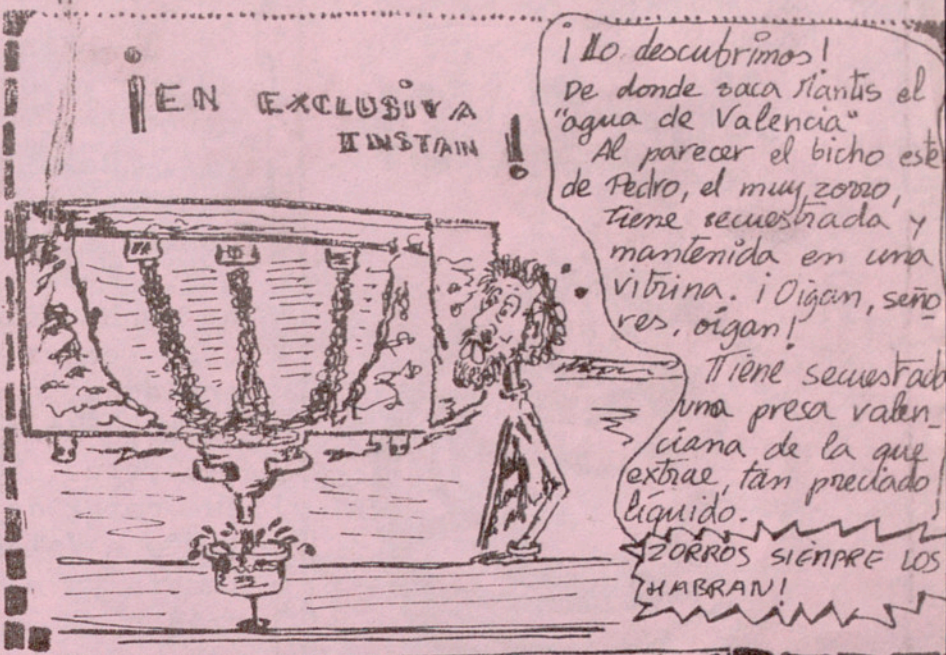 ¡EN EXCLUSIVA
TINSTAIN!
¡Lo descubrimos!
De donde saca Mantis el
"agua de Valencia"
Al parecer el bicho este
de Pedro, el muy zorro,
tiene secuestrada y
mantenida en una
vitrina. ¡Oigan, seño
res, oigan!
Tiene secuestrad
una presa valen_
ciana de la que
extrae, tan preciado
líquido.
¡ZORROS SIEMPRE LOS
HABRAN!